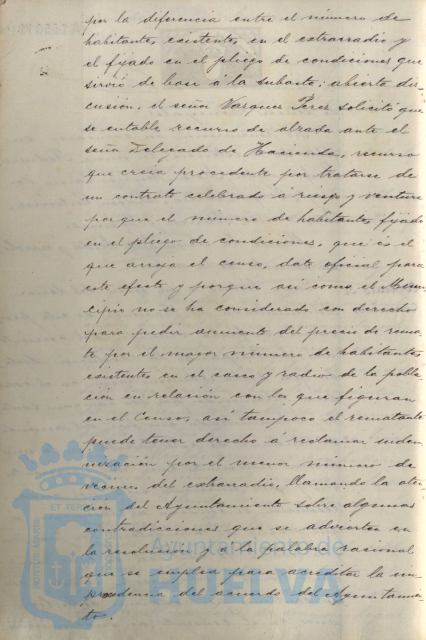 por la diferencia entre el número de
habitantes existentes en el extrarradio y
el fijado en el pliego de condiciones que
sirvió de base á la subasta; abierta dis-
cusión, el señor Vazquez Perez solicitó que
se entable recurso de alzada ante el
señor Delegado de Hacienda, recurso
que creia procedente por tratarse de
un contrato celebrado á riesgo y ventura
porque el número de habitantes fijado
en el pliego de condiciones, que es el
que arroja el censo, dato oficial para
este efecto y porque así como el Muni-
cipio no se ha considerado con derecho
para pedir aumento del precio de rema-
te por el mayor número de habitantes
existentes en el casco y radio de la pobla-
ción en relación con los que figuran
en el Censo, así tampoco el rematante
puede tener derecho á reclamar indem-
nización por el menor número de
vecinos del extrarradio, llamando la aten-
ción del Ayuntamiento sobre algunas
contradicciones que se advierten en
la resolución y á la palabra racional
que se emplea para acreditar la im-
procedencia del acuerdo del Ayuntamien-
to.
Ayuntamiento de
HUELVA